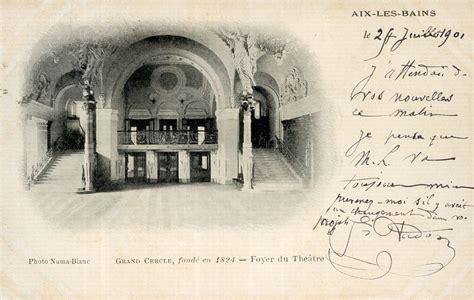 AIX-LES-BAINS
le 24 Juillet 1901
j'attendais de
vos nouvelles
ce matin
je pense que
M. L. va
toujours mieux
prévenez-moi s'il y avait
un changement dans vos
projets
Photo Numa-Blanc
GRAND CERCLE, fondé en 1824 — Foyer du Théâtre